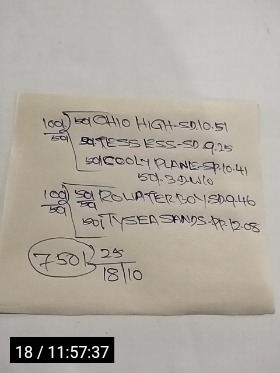 100/50 50/CHIO HIGH-SD.10.51
50/TESS ESS-SD.9.25
50/COOLY PLANE-SP.10.41
50/.3.DW10
100/50 50/50 ROWATERBOYSD9.46
50/ITYSEASANDS.PP.12.08
750/ 25
18/10
18 / 11:57:37